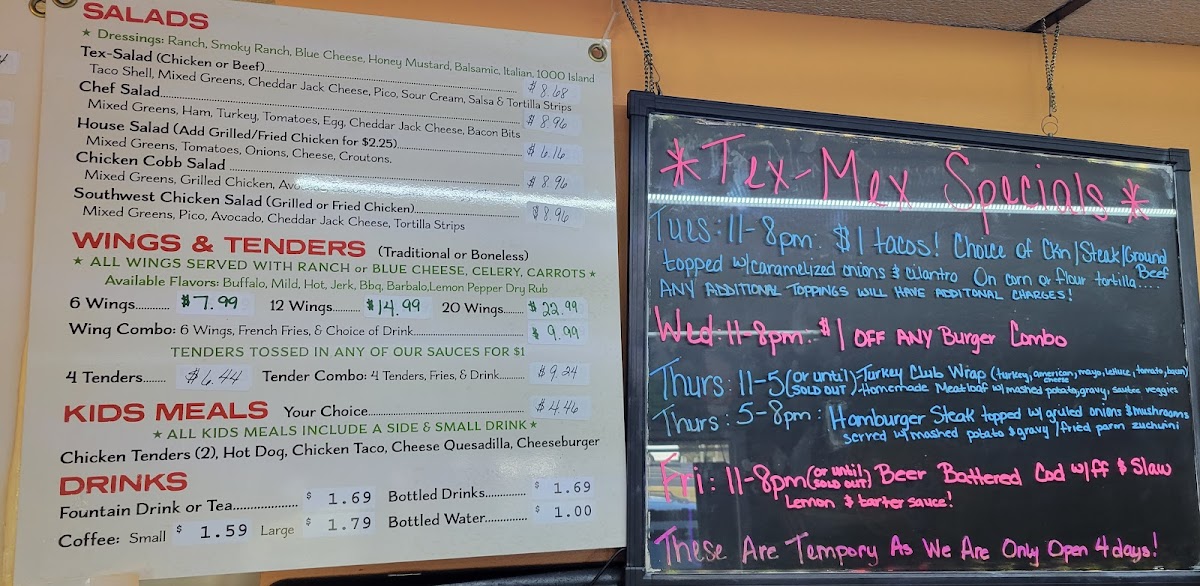 SALADS
★ Dressings: Ranch, Smoky Ranch, Blue Cheese, Honey Mustard, Balsamic, Italian, 1000 Island
Tex-Salad (Chicken or Beef) $8.68
Taco Shell, Mixed Greens, Cheddar Jack Cheese, Pico, Sour Cream, Salsa & Tortilla Strips
Chef Salad $8.96
Mixed Greens, Ham, Turkey, Tomatoes, Egg, Cheddar Jack Cheese, Bacon Bits
House Salad (Add Grilled/Fried Chicken for $2.25) $6.16
Mixed Greens, Tomatoes, Onions, Cheese, Croutons.
Chicken Cobb Salad $8.96
Mixed Greens, Grilled Chicken,
Southwest Chicken Salad (Grilled or Fried Chicken) $8.96
Mixed Greens, Pico, Avocado, Cheddar Jack Cheese, Tortilla Strips
WINGS & TENDERS (Traditional or Boneless)
★ ALL WINGS SERVED WITH RANCH or BLUE CHEESE, CELERY, CARROTS ★
Available Flavors: Buffalo, Mild, Hot, Jerk, Bbq, Barbalo, Lemon Pepper Dry Rub
6 Wings $7.99 12 Wings $14.99 20 Wings $22.99
Wing Combo: 6 Wings, French Fries, & Choice of Drink $9.99
TENDERS TOSSED IN ANY OF OUR SAUCES FOR $1
4 Tenders $6.44 Tender Combo: 4 Tenders, Fries, & Drink $9.24
KIDS MEALS Your Choice $4.46
★ ALL KIDS MEALS INCLUDE A SIDE & SMALL DRINK ★
Chicken Tenders (2), Hot Dog, Chicken Taco, Cheese Quesadilla, Cheeseburger
DRINKS
Fountain Drink or Tea $1.69 Bottled Drinks $1.69
Coffee: Small $1.59 Large $1.79 Bottled Water $1.00
*Tex-Mex Specials*
Tues: 11-8pm: $1 tacos! Choice of Ckn/Steak/Ground Beef
topped w/caramelized onions & cilantro On corn or flour tortilla....
ANY ADDITIONAL TOPPINGS WILL HAVE ADDITONAL CHARGES!
Wed: 11-8pm: $1 OFF ANY Burger Combo
Thurs: 11-5 (or until SOLD OUT) - Turkey Club Wrap (turkey, american cheese, mayo, lettuce, tomato, bacon)
- Homemade Meatloaf w/mashed potato, gravy, sautee veggies
Thurs: 5-8pm: Hamburger Steak topped w/ grilled onions & mushrooms
served w/ mashed potato & gravy / fried parm zucchini
Fri: 11-8pm (or until SOLD OUT) Beer Battered Cod w/ff & Slaw
Lemon & tarter sauce!
These Are Tempory As We Are Only Open 4 days!